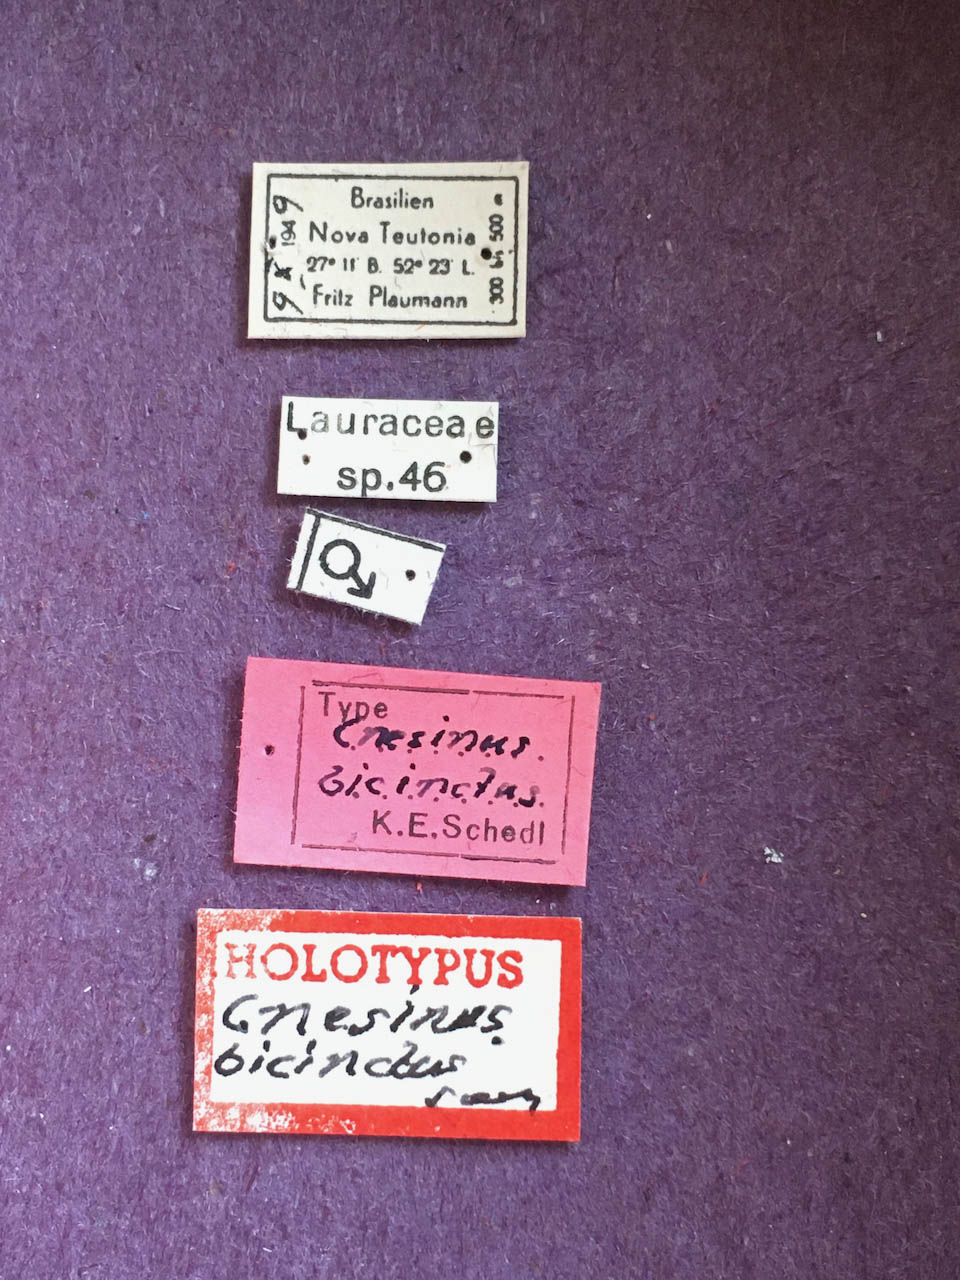 9 X 1949
Brasilien
Nova Teutonia
27° 11' B. 52° 23' L.
Fritz Plaumann
300 bis 500 m
Lauraceae
sp.46
♂
Type
Cnesinus
bicinctus
K.E.Schedl
HOLOTYPUS
Cnesinus
bicinctus